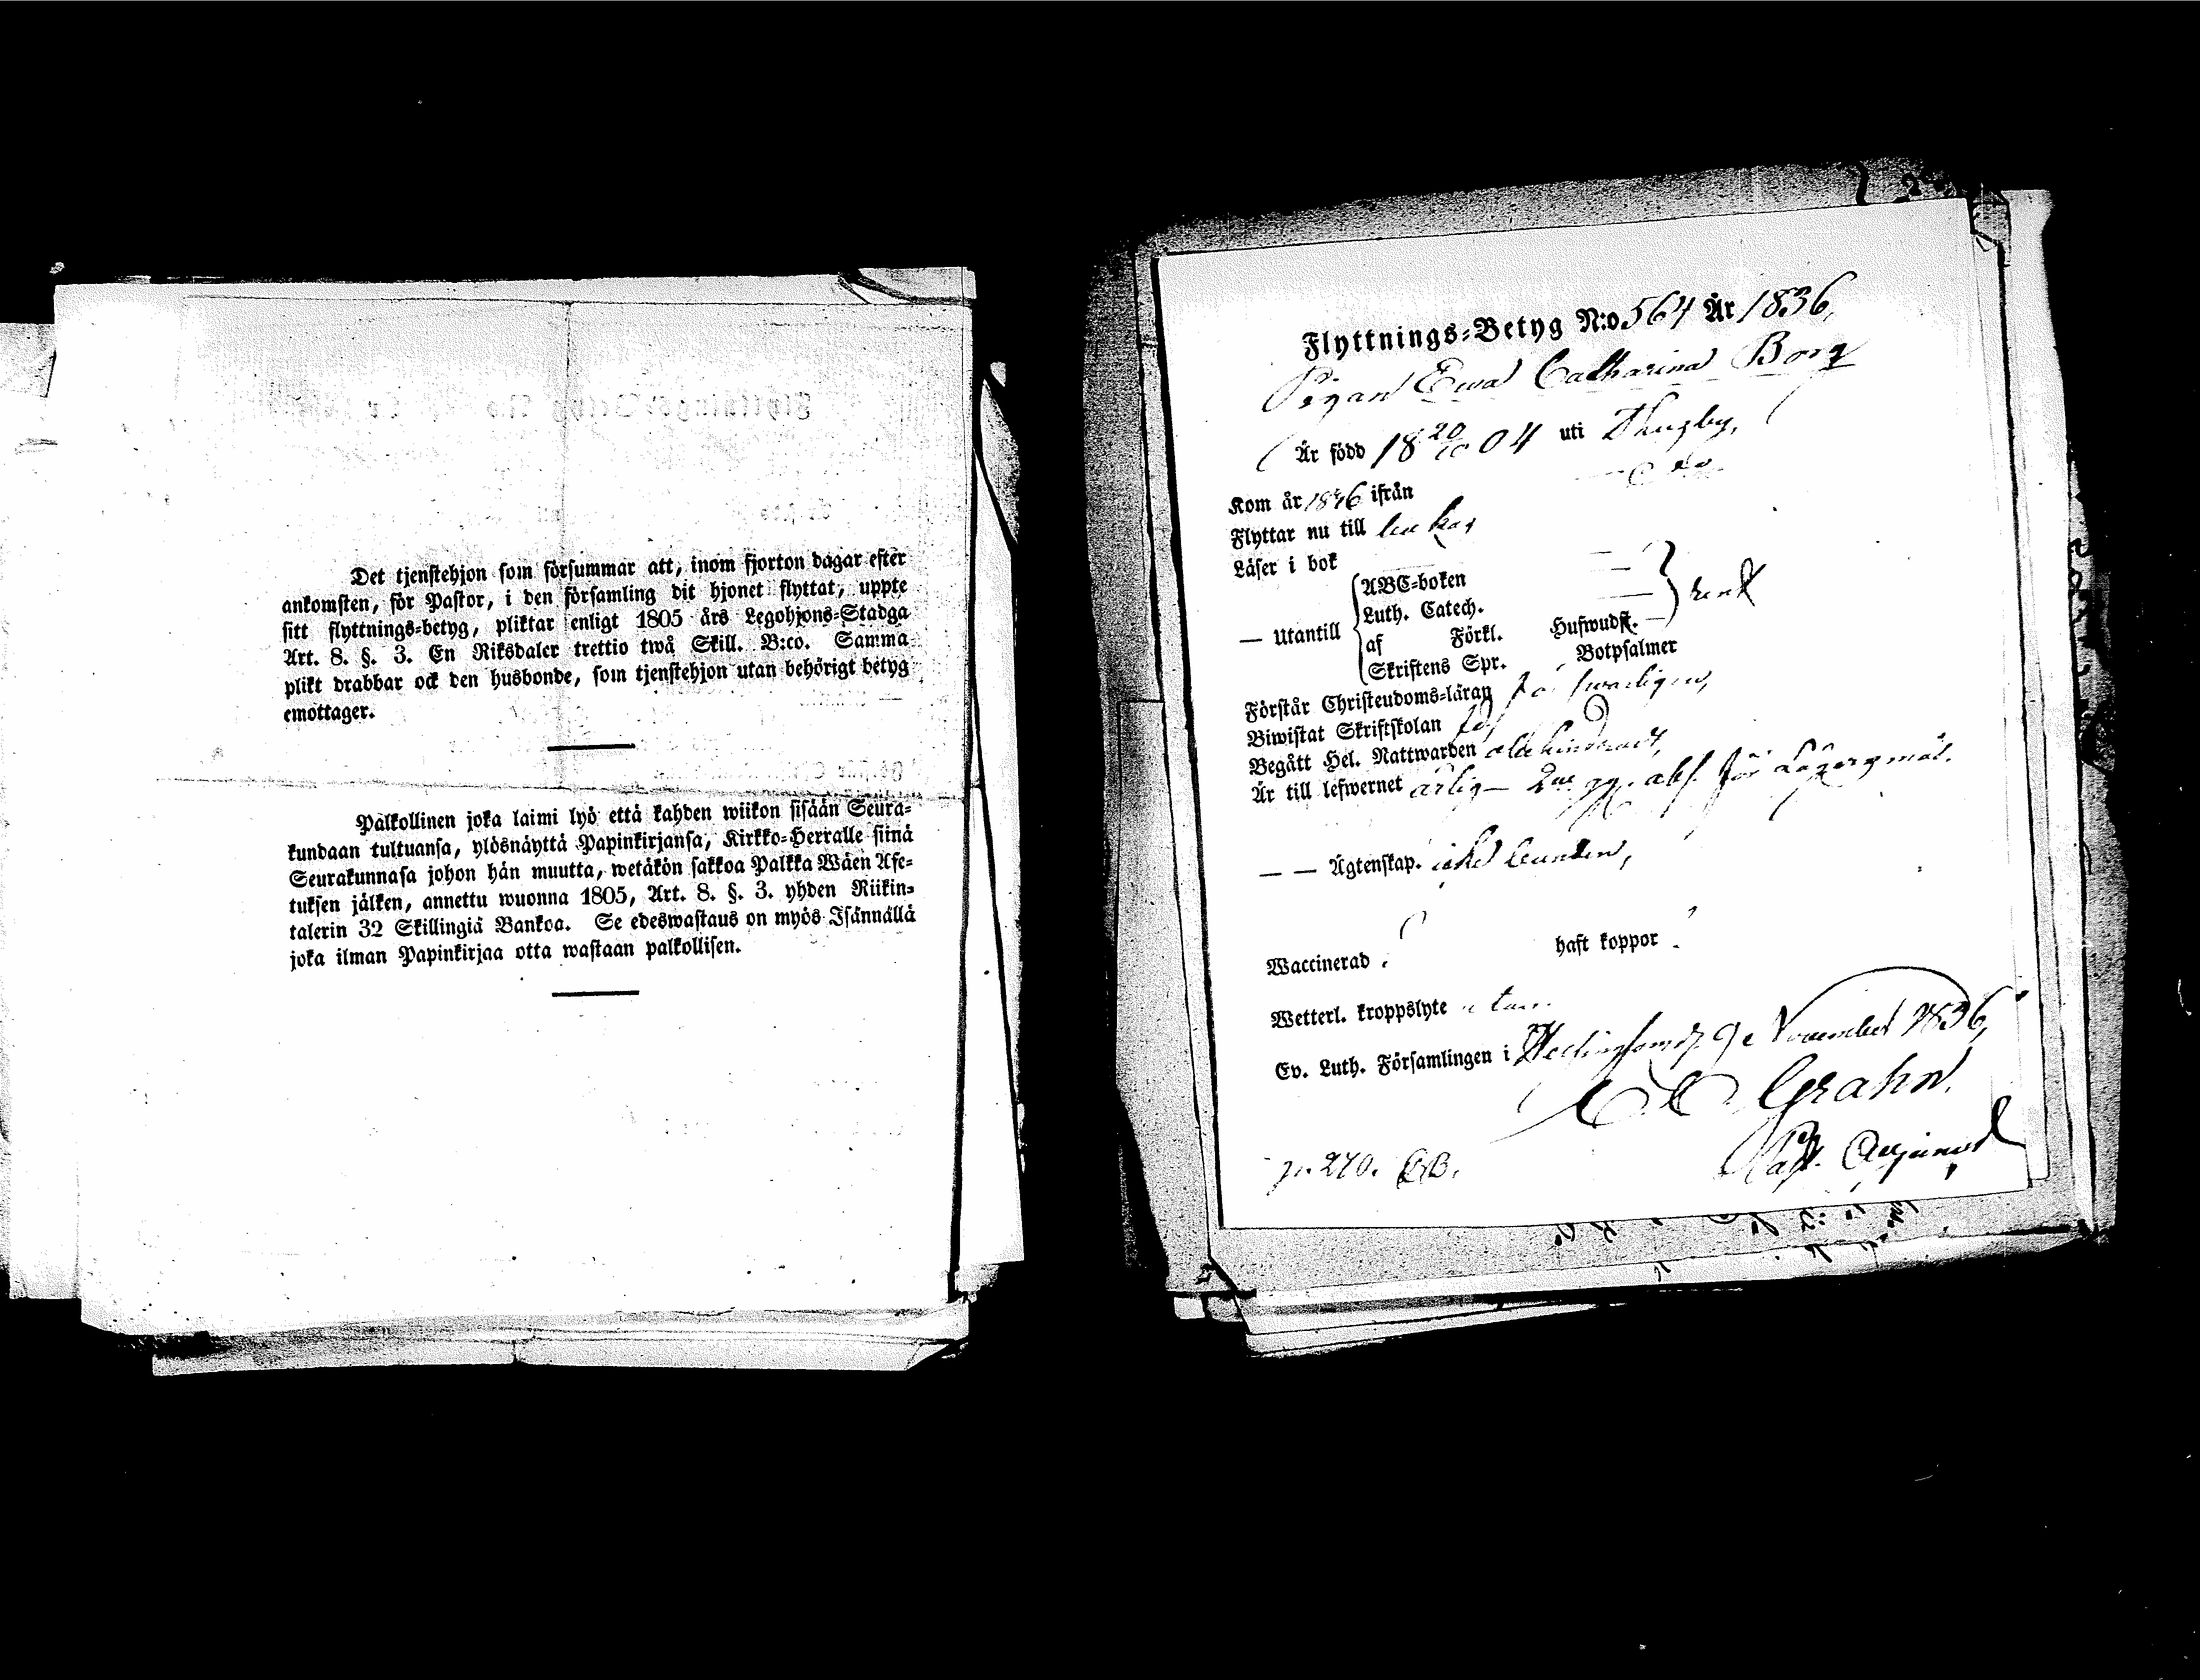 Det tjenstehjon som försummar att, inom fjorton dagar efter
ankomsten, för Pastor, i den församling dit hjonet flyttat, uppte
sitt flyttnings-betyg, pliktar enligt 1805 års Legohjons-Stadga
Art. 8. §. 3. En Riksdaler trettio twå Skill. B:co. Samma
plikt drabbar ock den husbonde, som tjenstehjon utan behörigt betyg
emottager.
Palkollinen joka laimi lyö että kahden wiikon sisään Seura-
kundaan tultuansa, ylösnäyttä Papinkirjansa, Kirkko-Herralle siinä
Seurakunnasa johon hän muutta, wetäkön sakkoa Palkka Wäen Ase-
tuksen jälken, annettu wuonna 1805, Art. 8. §. 3. yhden Riikin-
talerin 32 Skillingiä Bankoa. Se edeswastaus on myös Isännällä
joka ilman Papinkirjaa otta wastaan palkollisen.
Flyttnings-Betyg N:o 564 År 1836,
Pigan Ewa Catharina Borg
Är född 18 20/10 04 uti
Kom år ifrån
Flyttar nu till
Läser i bok
— Utantill
ABC-boken
Luth. Catech.
af Förkl. Hufwudst.
Skriftens Spr. Botpsalmer
Förstår Christendoms-läran förswarligen,
Biwistat Skriftskolan
Begått Hel. Nattwarden
Är till lefwernet ärlig — abs. för Lägersmål.
— — Ägtenskap.
Waccinerad ? haft koppor ?
Wetterl. kroppslyte utan
Ev. Luth. Församlingen i Helsingfors d. 9 November 1836,
Grahn.
Past. Adjunct
p. 270. CB.